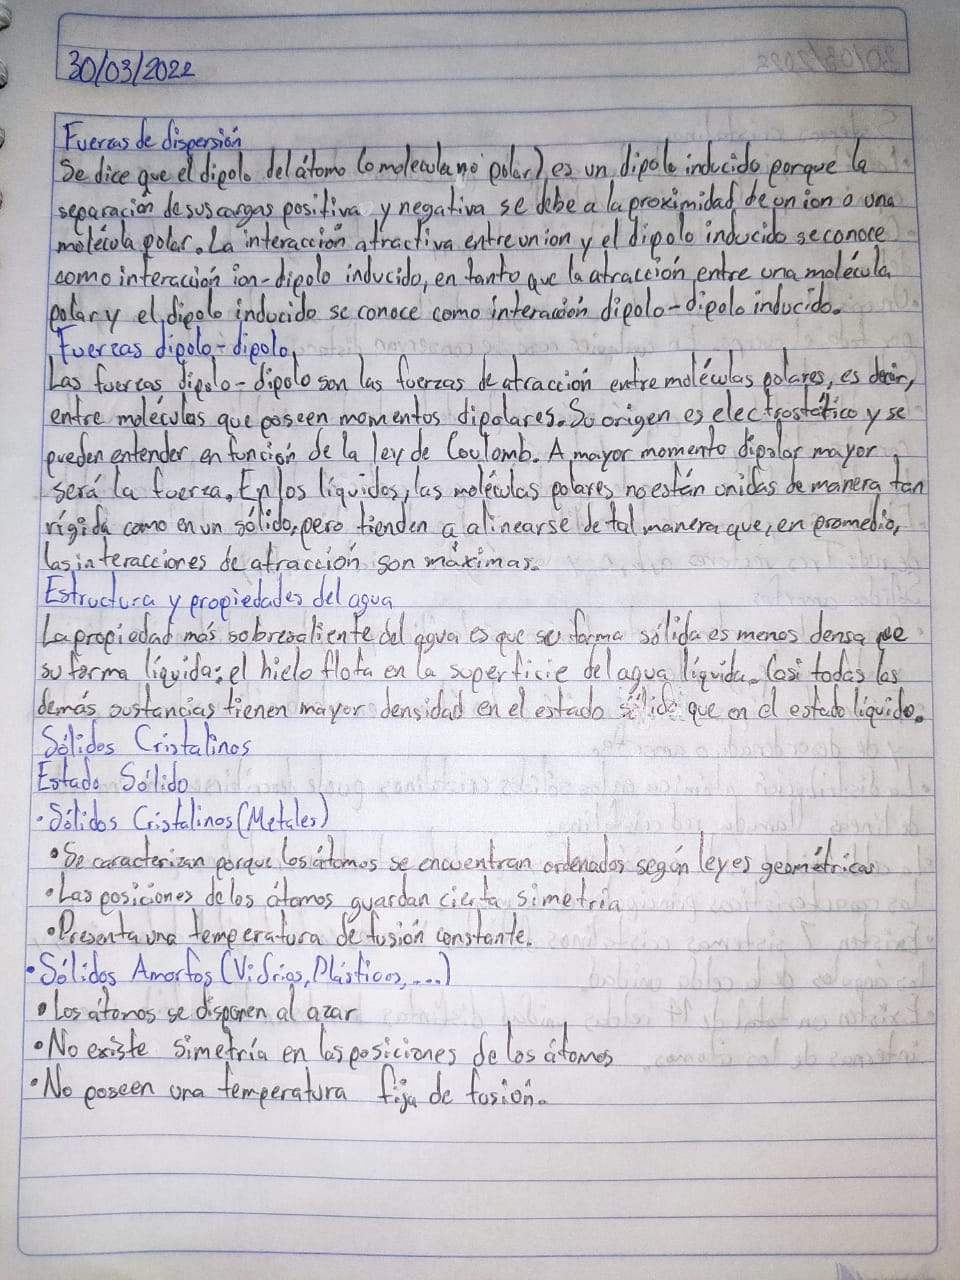 30/03/2022
Fuerzas de dispersión
Se dice que el dipolo del átomo (o molécula no polar) es un dipolo inducido porque la
separación de sus cargas positiva y negativa se debe a la proximidad de un ion o una
molécula polar. La interacción atractiva entre un ion y el dipolo inducido se conoce
como interacción ion-dipolo inducido, en tanto que la atracción entre una molécula
polar y el dipolo inducido se conoce como interacción dipolo-dipolo inducido.
Fuerzas dipolo-dipolo
Las fuerzas dipolo-dipolo son las fuerzas de atracción entre moléculas polares, es decir,
entre moléculas que poseen momentos dipolares. Su origen es electrostático y se
pueden entender en función de la ley de Coulomb. A mayor momento dipolar mayor
será la fuerza. En los líquidos, las moléculas polares no están unidas de manera tan
rígida como en un sólido, pero tienden a alinearse de tal manera que, en promedio,
las interacciones de atracción son máximas.
Estructura y propiedades del agua
La propiedad más sobresaliente del agua es que su forma sólida es menos densa que
su forma líquida: el hielo flota en la superficie del agua líquida. Casi todas las
demás sustancias tienen mayor densidad en el estado sólido que en el estado líquido.
Sólidos Cristalinos
Estado Sólido
• Sólidos Cristalinos (Metales)
• Se caracterizan porque los átomos se encuentran ordenados según leyes geométricas
• Las posiciones de los átomos guardan cierta simetría
• Presenta una temperatura de fusión constante.
• Sólidos Amorfos (Vidrios, Plásticos, ...)
• Los átomos se disponen al azar
• No existe simetría en las posiciones de los átomos
• No poseen una temperatura fija de fusión.